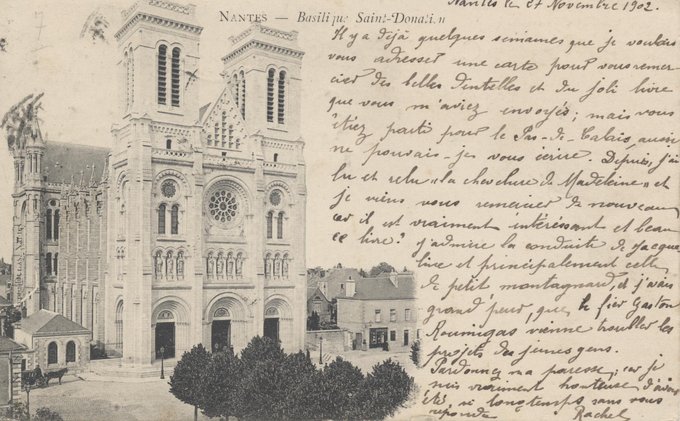 NANTES — Basilique Saint-Donatien
Nantes le 27 Novembre 1902.
Il y a déjà quelques semaines que je voulais
vous adresser une carte pour vous remer-
cier des belles dentelles et du joli livre
que vous m'aviez envoyés; mais vous
étiez partie pour le Pas-de-Calais, aussi
ne pouvais-je vous écrire. Depuis, j'ai
lu et relu « la chevelure de Madeleine » et
je viens vous remercier de nouveau
car il est vraiment intéressant et beau
ce livre? j'admire la conduite de Jacque
line et principalement celle
du petit montagnard, et j'avais
grand peur, que le fier Gaston
Roumigas vienne troubler les
projets des jeunes gens.
Pardonnez ma paresse; car je
suis vraiment honteuse d'avoir
été si longtemps sans vous
répondre Rachel